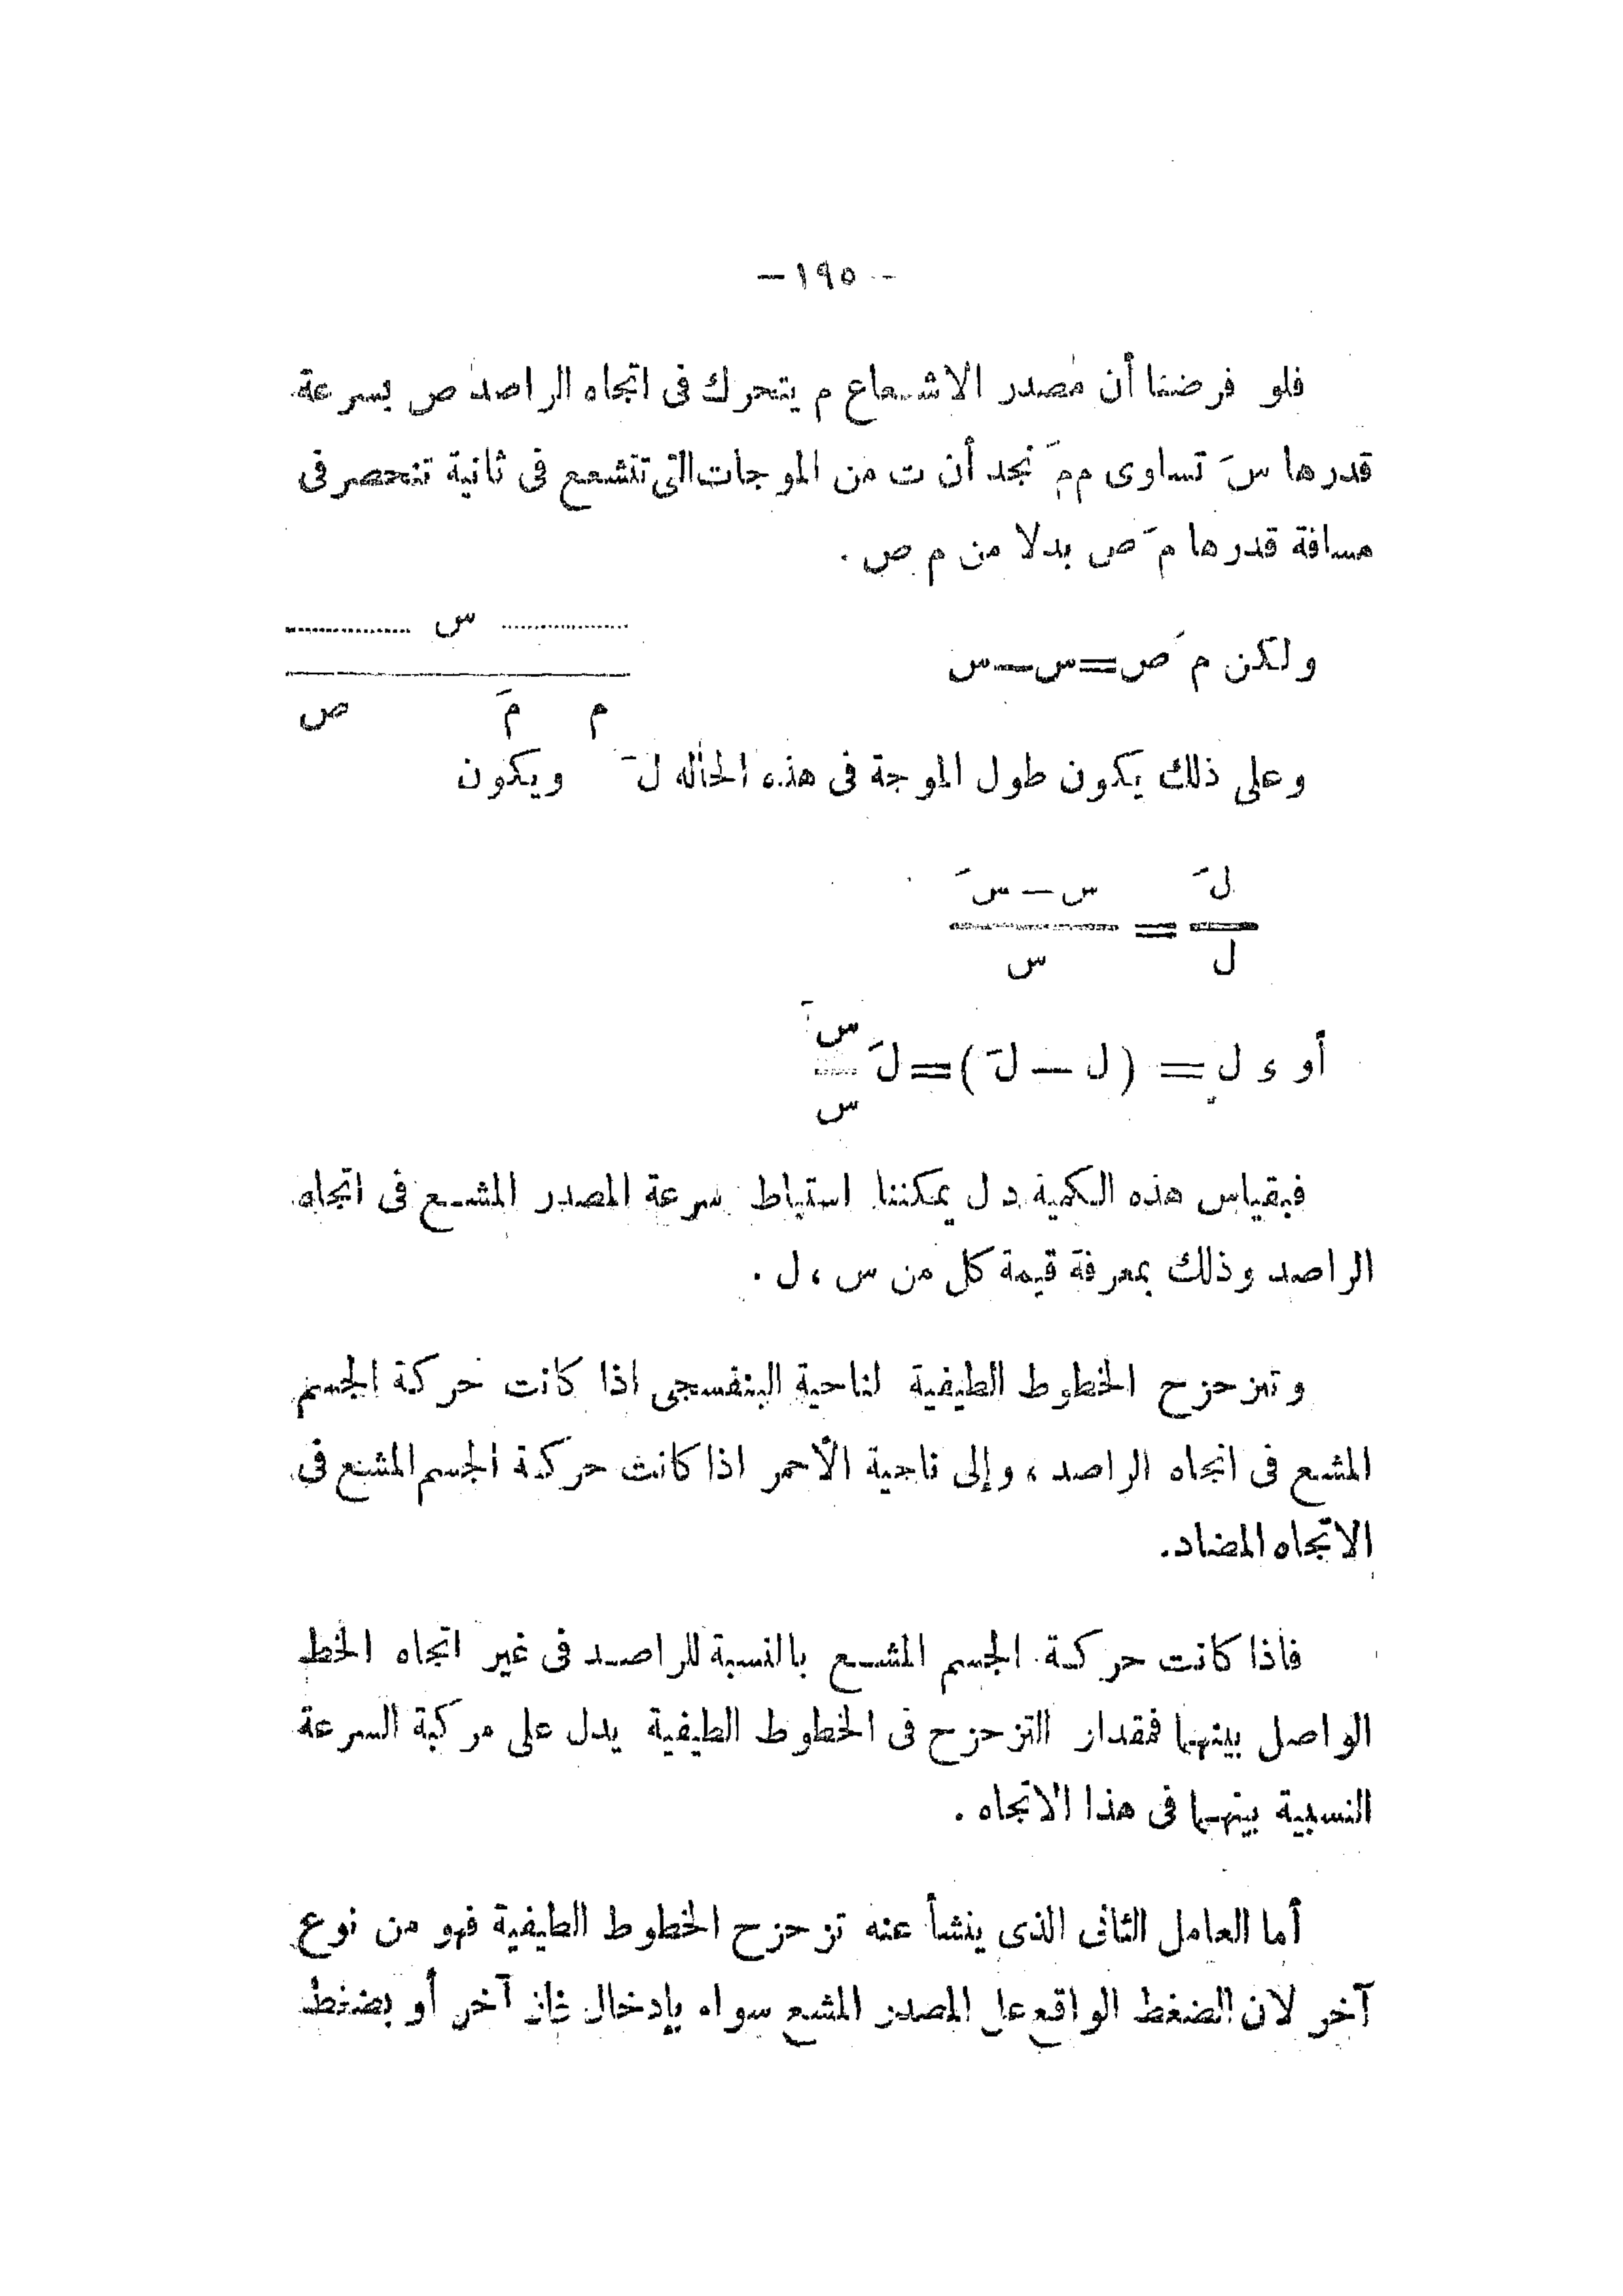 — ١٩٥ —
فلو فرضنا أن مصدر الاشعاع م يتحرك فى اتجاه الراصد ص بسرعة
قدرها سَ تساوى ممَ نجد أن ت من الموجات التى تتشعع فى ثانية تنحصر فى
مسافة قدرها مَ ص بدلا من م ص .
ولكن مَ ص = س — س
س
ص مَ م
وعلى ذلك يكون طول الموجة فى هذه الحاله لَ ويكون
لَ / ل = س — سَ / س
أو ء ل = (ل — لَ) = لَ سَ / س
فبقياس هذه الكمية د ل يمكننا استياط سرعة المصدر المشع فى اتجاه
الراصد وذلك بمعرفة قيمة كل من س ، ل .
وتتزحزح الخطوط الطيفية لناحية البنفسجى اذا كانت حركة الجسم
المشع فى اتجاه الراصد ، وإلى ناحية الأحمر اذا كانت حركة الجسم المشع فى
الاتجاه المضاد.
فاذا كانت حركة الجسم المشع بالنسبة للراصد فى غير اتجاه الخط
الواصل بينهما فمقدار التزحزح فى الخطوط الطيفية يدل على مركبة السرعة
النسبية بينهما فى هذا الاتجاه .
أما العامل الثانى الذى ينشأ عنه تزحزح الخطوط الطيفية فهو من نوع
آخر لان الضغط الواقع على المصدر المشع سواء بإدخال غاز آخر أو بضغط